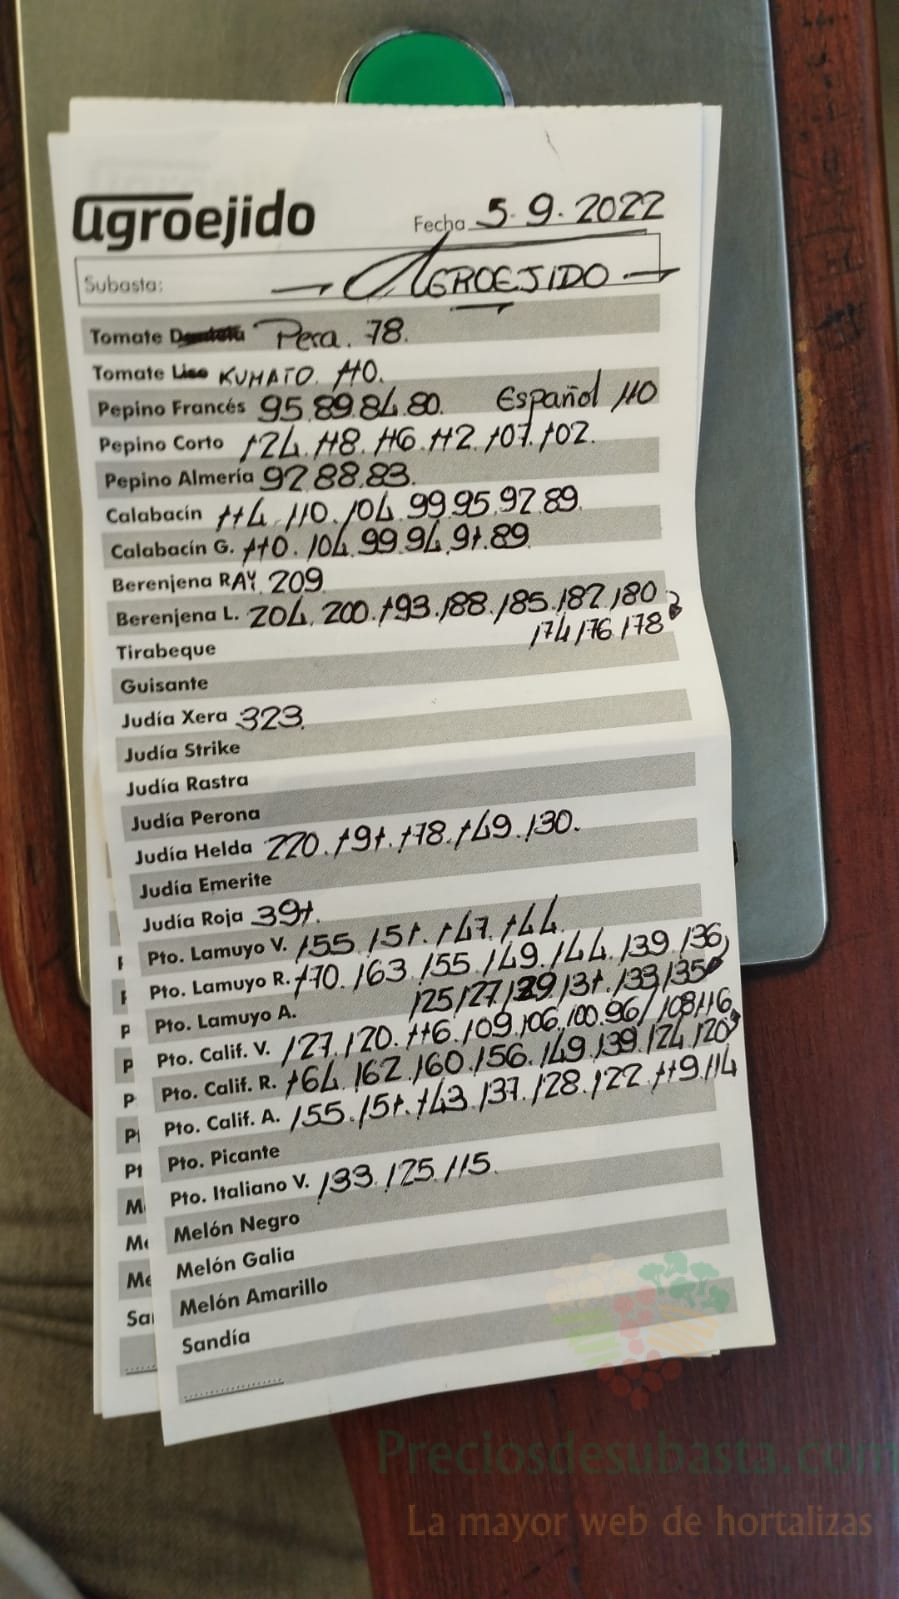 agroejido
Fecha 5.9.2022
Subasta: → AGROEJIDO →
Tomate Pera. 78.
Tomate Liso KUMATO. 110.
Pepino Francés 95.89.84.80. Español 110
Pepino Corto 124.118.116.112.107.102.
Pepino Almería 92.88.83.
Calabacín 114.110.104.99.95.92.89.
Calabacín G. 110.104.99.94.91.89.
Berenjena RAY. 209.
Berenjena L. 204.200.193.188.185.182.180
174.176.178
Tirabeque
Guisante
Judía Xera 323.
Judía Strike
Judía Rastra
Judía Perona
Judía Helda 220.191.178.149.130.
Judía Emerite
Judía Roja 391.
Pto. Lamuyo V. 155.151.147.144.
Pto. Lamuyo R. 170.163.155.149.144.139.136
125.127.129.131.133.135
Pto. Lamuyo A.
Pto. Calif. V. 127.120.116.109.106.100.96/108.116
Pto. Calif. R. 164.162.160.156.149.139.124.120
Pto. Calif. A. 155.151.143.137.128.122.119.114
Pto. Picante
Pto. Italiano V. 133.125.115.
Melón Negro
Melón Galia
Melón Amarillo
Sandía
P
P
P
Pt
M
Me
Me
Sa
Preciosdesubasta.com
La mayor web de hortalizas